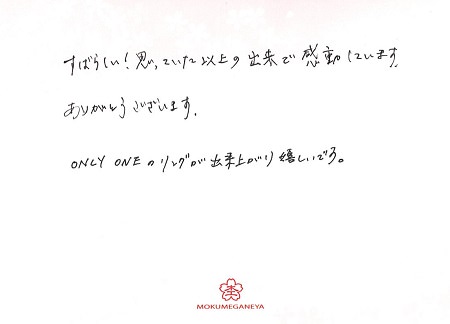 すばらしい！思っていた以上の出来で感動しています
ありがとうございます.
ONLY ONEのリングが出来上がり嬉しいです。
MOKUMEGANEYA